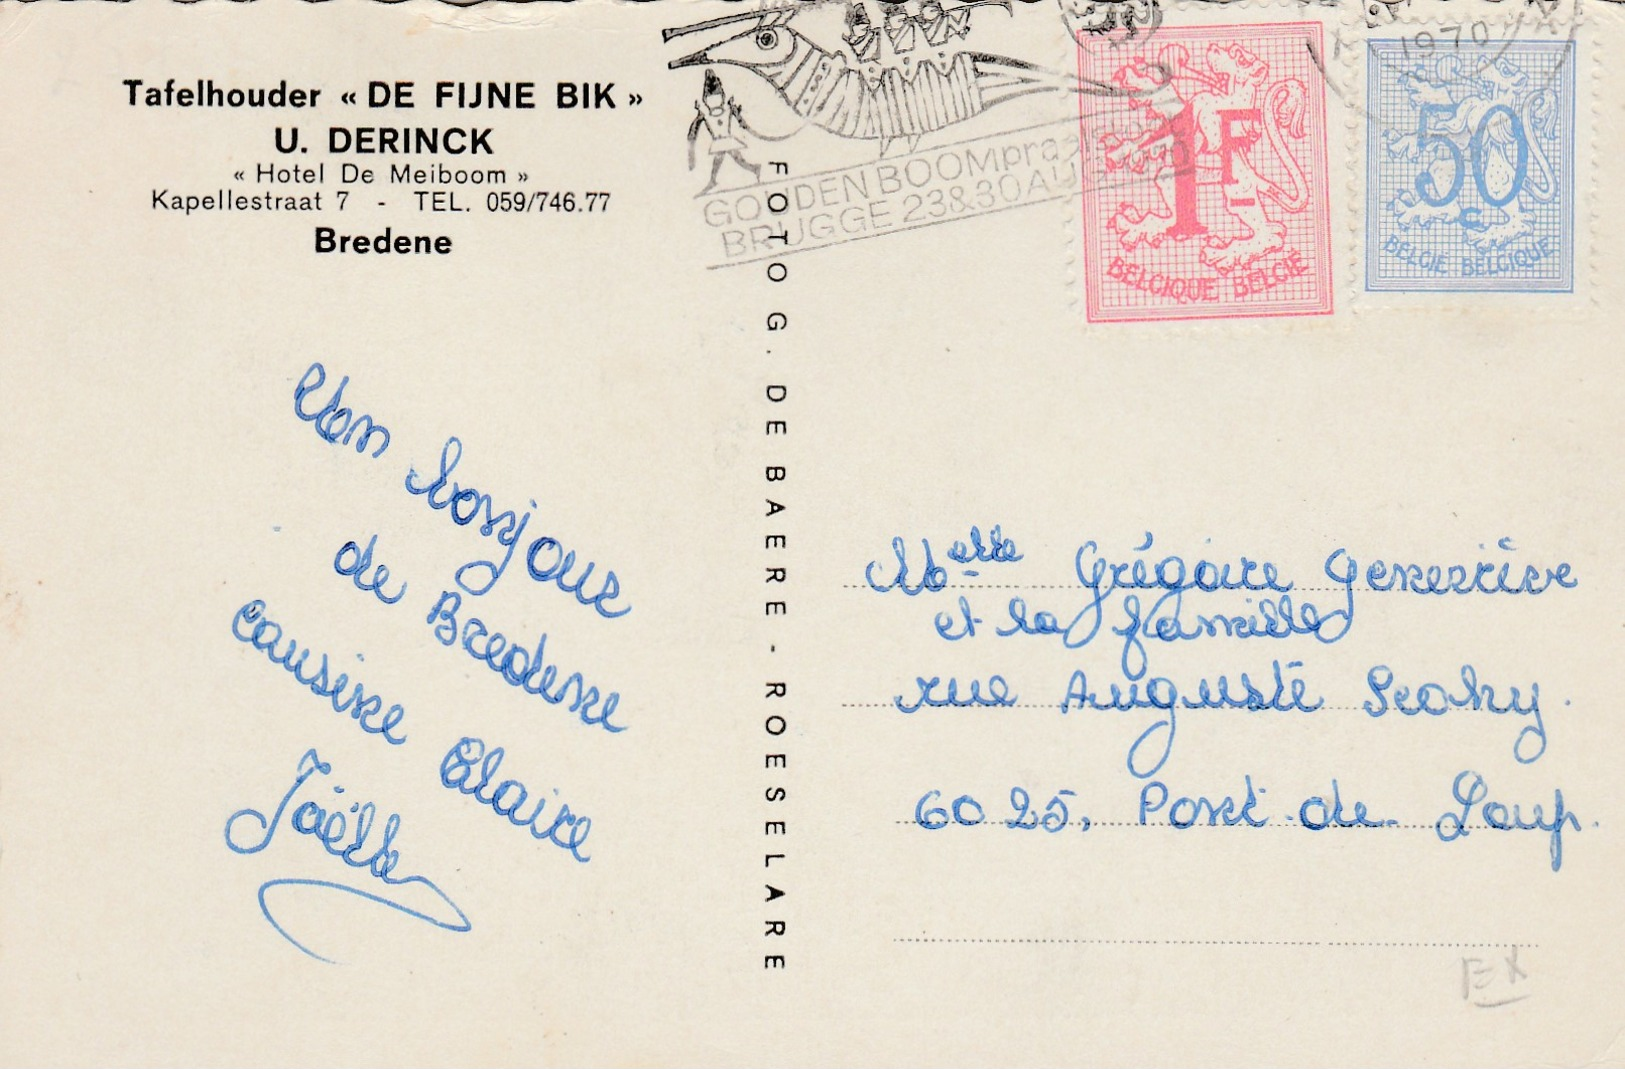 Tafelhouder « DE FIJNE BIK »
U. DERINCK
« Hotel De Meiboom »
Kapellestraat 7 - TEL. 059/746.77
Bredene
GOUDEN BOOM
BRUGGE 23&30 AU
1970
1F
BELGIQUE BELGIË
50
c
BELGIË BELGIQUE
FOTO G. DE BAERE - ROESELARE
Un bonjour
de Bredene
cousine Claire
Joëlle
Melle Grégoire Geneviève
et la famille
rue Auguste Scohy.
6025, Pont de Loup.
EX